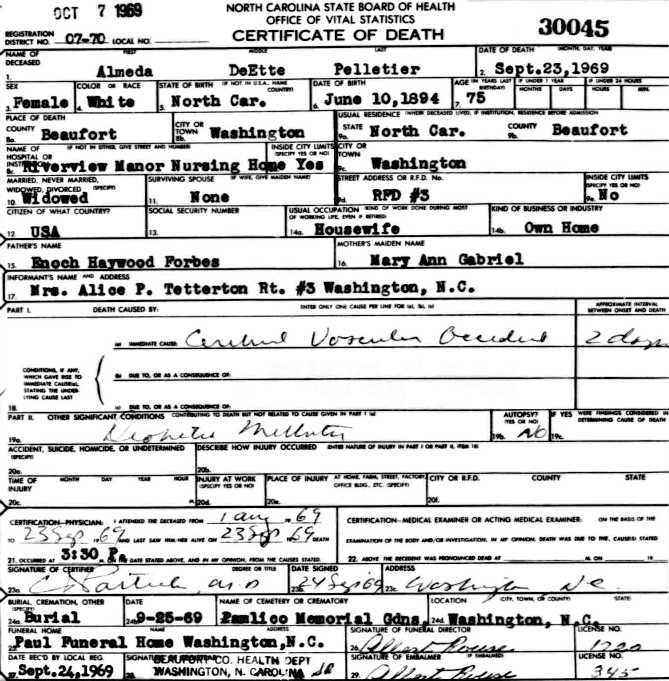 OCT 7 1969
NORTH CAROLINA STATE BOARD OF HEALTH
OFFICE OF VITAL STATISTICS
REGISTRATION DISTRICT NO. 07-70 LOCAL NO. CERTIFICATE OF DEATH 30045
NAME OF DECEASED FIRST MIDDLE LAST DATE OF DEATH (MONTH, DAY, YEAR)
1. Almeda DeEtte Pelletier 2. Sept.23,1969
SEX COLOR OR RACE STATE OF BIRTH (IF NOT IN U.S.A., NAME COUNTRY) DATE OF BIRTH AGE (IN YEARS LAST BIRTHDAY) IF UNDER 1 YEAR IF UNDER 24 HOURS
MONTHS DAYS HOURS MIN.
3. Female 4. White 5. North Car. 6. June 10,1894 7. 75
PLACE OF DEATH CITY OR TOWN USUAL RESIDENCE (WHERE DECEASED LIVED, IF INSTITUTION, RESIDENCE BEFORE ADMISSION)
COUNTY 8a. Beaufort 8b. Washington STATE 9a. North Car. COUNTY 9b. Beaufort
NAME OF HOSPITAL OR INSTITUTION (IF NOT IN EITHER, GIVE STREET AND NUMBER) INSIDE CITY LIMITS (SPECIFY YES OR NO) CITY OR TOWN
8c. Riverview Manor Nursing Home Yes 9c. Washington
MARRIED, NEVER MARRIED, WIDOWED, DIVORCED (SPECIFY) SURVIVING SPOUSE (IF WIFE, GIVE MAIDEN NAME) STREET ADDRESS OR R.F.D. No. INSIDE CITY LIMITS (SPECIFY YES OR NO)
10. Widowed 11. None 9d. RFD #3 9e. No
CITIZEN OF WHAT COUNTRY? SOCIAL SECURITY NUMBER USUAL OCCUPATION (KIND OF WORK DONE DURING MOST OF WORKING LIFE, EVEN IF RETIRED) KIND OF BUSINESS OR INDUSTRY
12. USA 13. 14a. Housewife 14b. Own Home
FATHER'S NAME MOTHER'S MAIDEN NAME
15. Enoch Haywood Forbes 16. Mary Ann Gabriel
INFORMANT'S NAME AND ADDRESS
17. Mrs. Alice P. Tetterton Rt. #3 Washington, N.C.
PART I. DEATH CAUSED BY: ENTER ONLY ONE CAUSE PER LINE FOR (a), (b), (c) APPROXIMATE INTERVAL BETWEEN ONSET AND DEATH
(a) IMMEDIATE CAUSE: Cerebral Vascular Accident 2 days
CONDITIONS, IF ANY, WHICH GAVE RISE TO IMMEDIATE CAUSE(a), STATING THE UNDERLYING CAUSE LAST
(b) DUE TO, OR AS A CONSEQUENCE OF:
18. (c) DUE TO, OR AS A CONSEQUENCE OF:
PART II. OTHER SIGNIFICANT CONDITIONS CONTRIBUTING TO DEATH BUT NOT RELATED TO CAUSE GIVEN IN PART I (a) AUTOPSY? (YES OR NO) IF YES WERE FINDINGS CONSIDERED IN DETERMINING CAUSE OF DEATH
19a. Diabetes Mellitus 19b. NO 19c.
ACCIDENT, SUICIDE, HOMICIDE, OR UNDETERMINED (SPECIFY) DESCRIBE HOW INJURY OCCURRED (ENTER NATURE OF INJURY IN PART I OR PART II, ITEM 18)
20a. 20b.
TIME OF INJURY MONTH DAY YEAR HOUR INJURY AT WORK (SPECIFY YES OR NO) PLACE OF INJURY AT HOME, FARM, STREET, FACTORY, OFFICE BLDG., ETC. (SPECIFY) CITY OR R.F.D. COUNTY STATE
20c. M. 20d. 20e. 20f.
CERTIFICATION—PHYSICIAN: I ATTENDED THE DECEASED FROM 1 aug 1969 CERTIFICATION—MEDICAL EXAMINER OR ACTING MEDICAL EXAMINER: ON THE BASIS OF THE
TO 23 Sep 69 AND LAST SAW HIM/HER ALIVE ON 23 Sep 69 DEATH EXAMINATION OF THE BODY AND/OR INVESTIGATION, IN MY OPINION, DEATH WAS DUE TO THE, CAUSE(S) STATED
21. OCCURRED AT 3:30 P. M. ON DATE STATED ABOVE, AND IN MY OPINION, FROM THE CAUSES STATED. 22. ABOVE. THE DECEDENT WAS PRONOUNCED DEAD AT M. ON 19
SIGNATURE OF CERTIFIER DEGREE OR TITLE DATE SIGNED ADDRESS
23a. M.D 23b. 24 Sep 69 23c. Washington N.C.
BURIAL, CREMATION, OTHER (SPECIFY) DATE NAME OF CEMETERY OR CREMATORY LOCATION (CITY, TOWN, OR COUNTY) (STATE)
24a. Burial 24b. 9-25-69 Pamlico Memorial Gdns. 24d. Washington, N.C.
FUNERAL HOME NAME ADDRESS SIGNATURE OF FUNERAL DIRECTOR LICENSE NO.
25. Paul Funeral Home Washington,N.C. 26. Albert House 1220
DATE REC'D BY LOCAL REG. SIGNATURE BEAUFORT CO. HEALTH DEPT SIGNATURE OF EMBALMER (IF EMBALMED) LICENSE NO.
27. Sept.24,1969 28. WASHINGTON, N. CAROLINA 29. Albert House 345